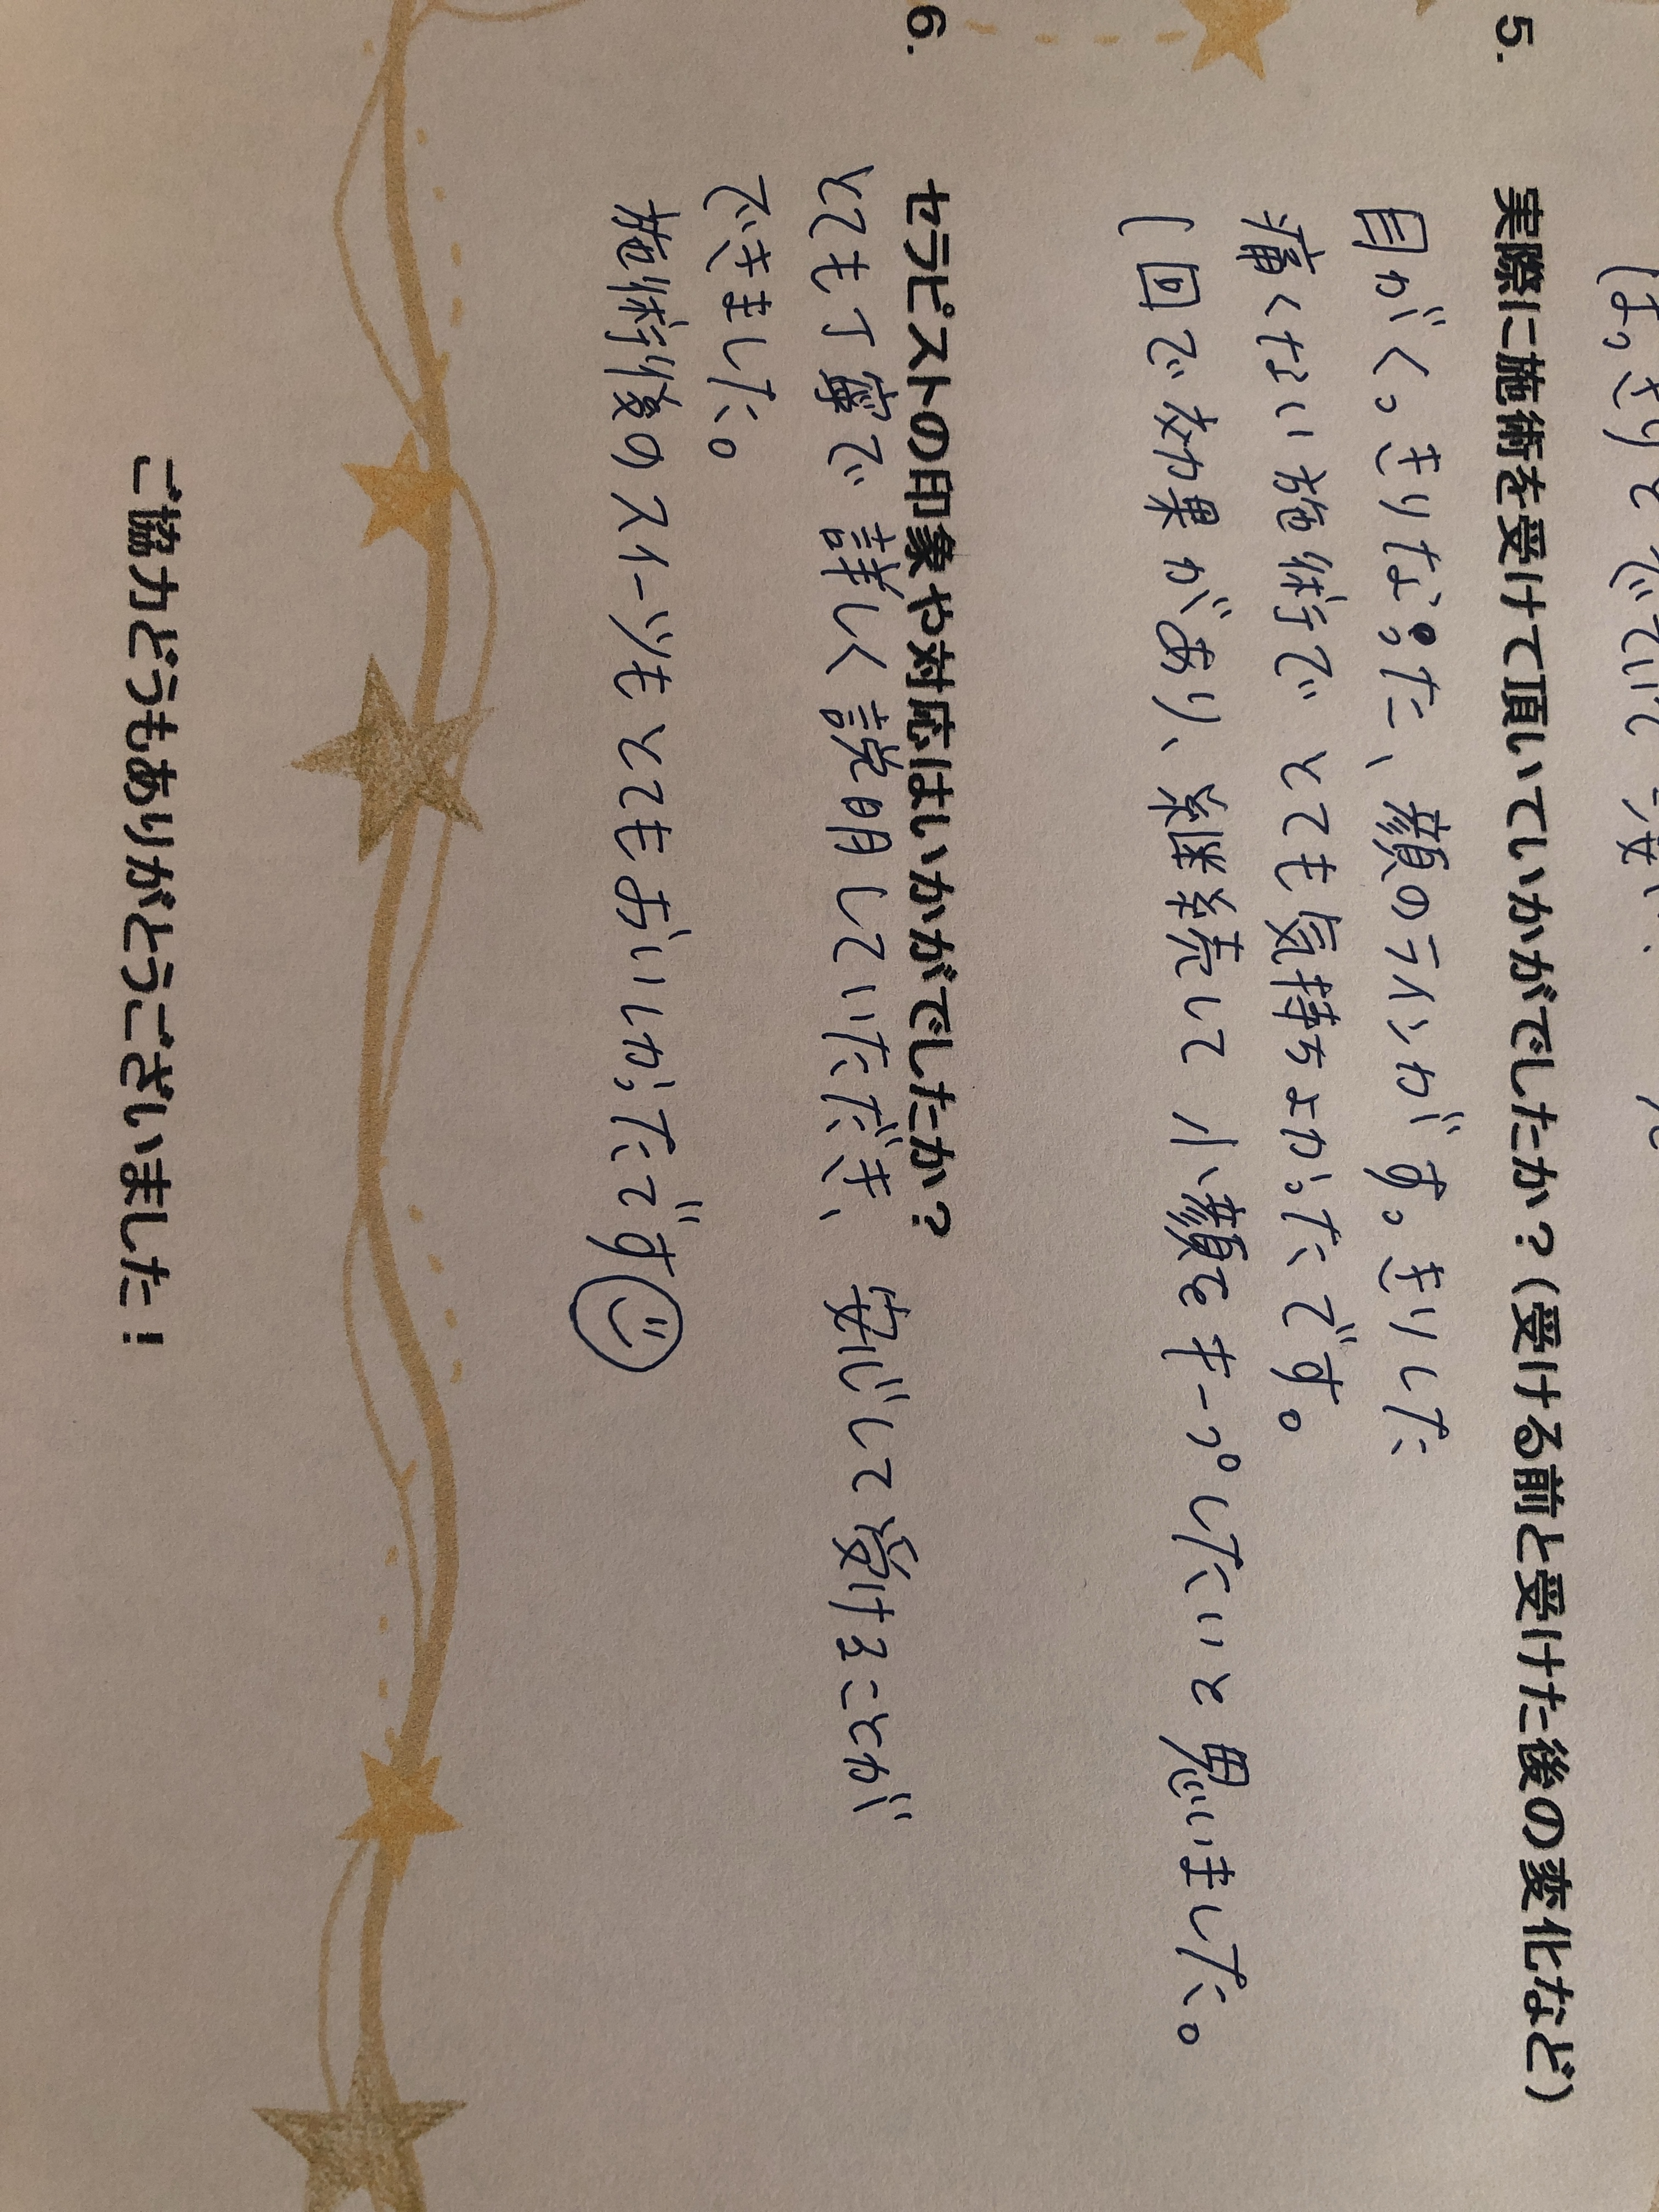 5. 実際に施術を受けて頂いていかがでしたか？（受ける前と受けた後の変化など）
目がくっきりなった、顔のラインがすっきりした
痛くない施術でとても気持ちよかったです。
1回で効果があり、継続して小顔をキープしたいと思いました。
6. セラピストの印象や対応はいかがでしたか？
とても丁寧で詳しく説明していただき、安心して受けることが
できました。
施術後のスイーツもとてもおいしかったです
ご協力どうもありがとうございました！